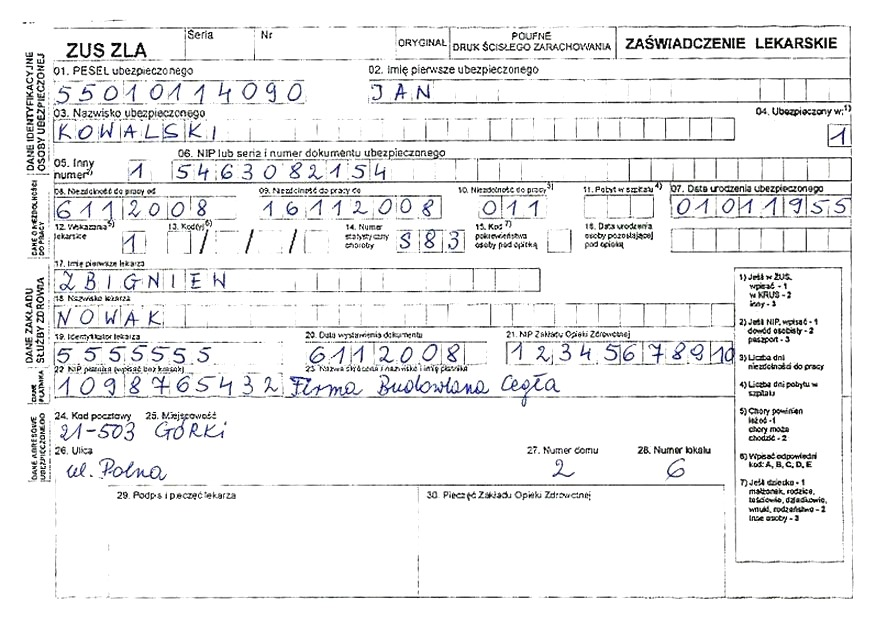 ZUS ZLA
Seria
Nr
ORYGINAŁ
POUFNE
DRUK ŚCISŁEGO ZARACHOWANIA
ZAŚWIADCZENIE LEKARSKIE
DANE IDENTYFIKACYJNE
OSOBY UBEZPIECZONEJ
01. PESEL ubezpieczonego
02. Imię pierwsze ubezpieczonego
55010114090
JAN
03. Nazwisko ubezpieczonego
04. Ubezpieczony w:1)
KOWALSKI
1
05. Inny
numer2)
1
06. NIP lub seria i numer dokumentu ubezpieczonego
5463082154
DANE O NIEZDOLNOŚCI
DO PRACY
08. Niezdolność do pracy od
09. Niezdolność do pracy do
10. Niezdolność do pracy3)
11. Pobyt w szpitalu4)
07. Data urodzenia ubezpieczonego
6112008
16112008
011
01011955
12. Wskazania5)
lekarskie
1
13. Kod(y)6)
/ / / /
14. Numer
statystyczny
choroby
S83
15. Kod7)
pokrewieństwa
osoby pod opieką
16. Data urodzenia
osoby pozostającej
pod opieką
DANE ZAKŁADU
SŁUŻBY ZDROWIA
17. Imię pierwsze lekarza
ZBIGNIEW
18. Nazwisko lekarza
NOWAK
19. Identyfikator lekarza
20. Data wystawienia dokumentu
21. NIP Zakładu Opieki Zdrowotnej
5555555
6112008
12345678910
DANE
PŁATNIKA
22. NIP płatnika (wpisać bez kresek)
23. Nazwa skrócona / nazwisko i imię płatnika
1098765432
Firma Budowlana Cegła
DANE ADRESOWE
UBEZPIECZONEGO
24. Kod pocztowy
25. Miejscowość
21-503
GÓRKI
26. Ulica
27. Numer domu
28. Numer lokalu
ul. Polna
2
6
29. Podpis i pieczęć lekarza
30. Pieczęć Zakładu Opieki Zdrowotnej
1) Jeśli w ZUS,
wpisać - 1
w KRUS - 2
inny - 3
2) Jeśli NIP, wpisać - 1
dowód osobisty - 2
paszport - 3
3) Liczba dni
niezdolności do pracy
4) Liczba dni pobytu w
szpitalu
5) Chory powinien
leżeć -1
chory może
chodzić - 2
6) Wpisać odpowiedni
kod: A, B, C, D, E
7) Jeśli dziecko - 1
małżonek, rodzice,
teściowie, dziadkowie,
wnuki, rodzeństwo - 2
inne osoby - 3